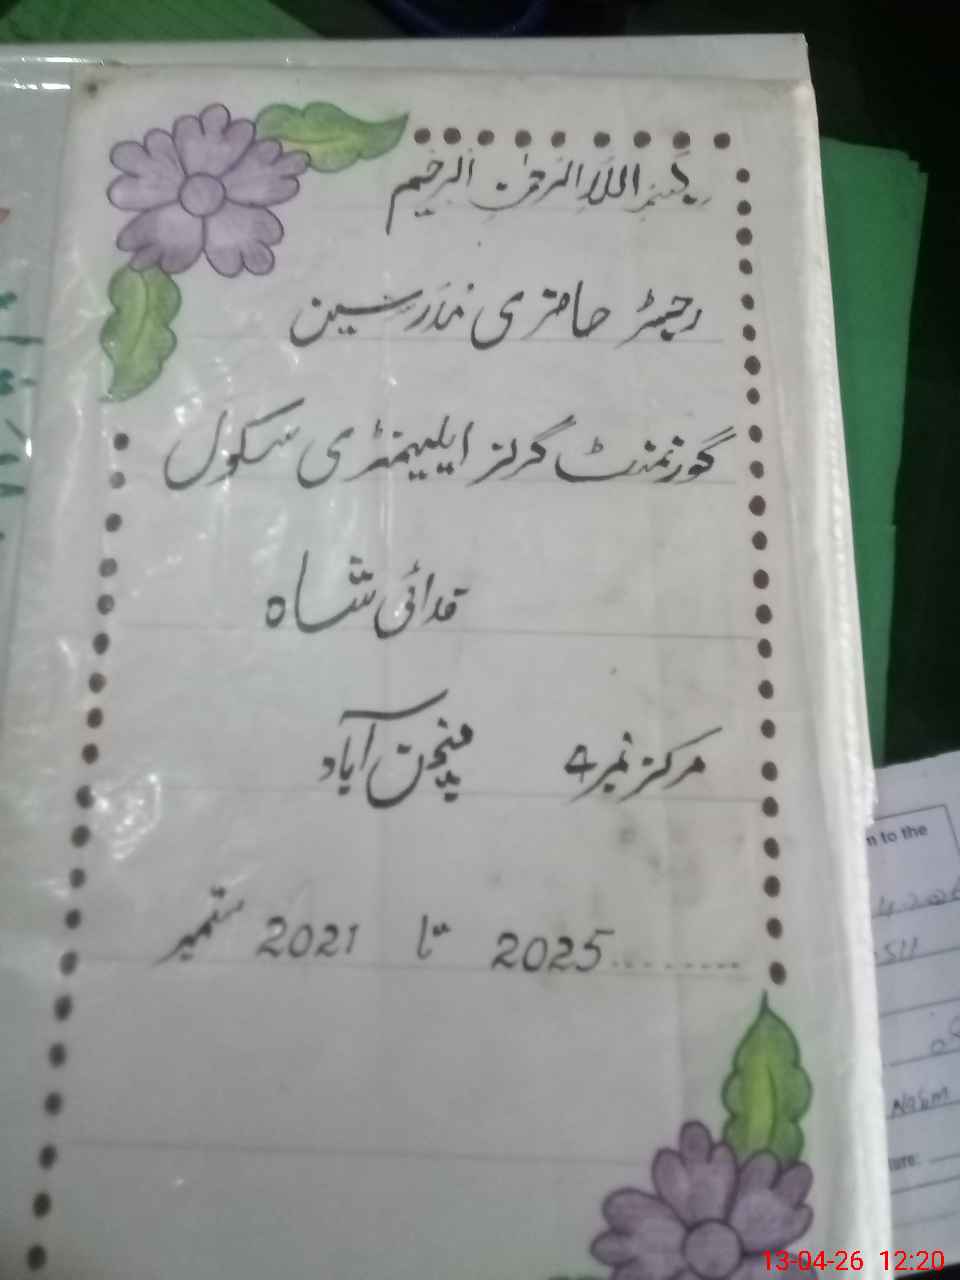 بسم اللہ الرحمٰن الرحیم
رجسٹر حاضری مدرسین
گورنمنٹ گرلز ایلیمنٹری سکول
فدائی شاہ
مرکز نمبر 4 پنجتن آباد
ستمبر 2021 تا 2025........
n to the
Nasm
ure:
13-04-26 12:20